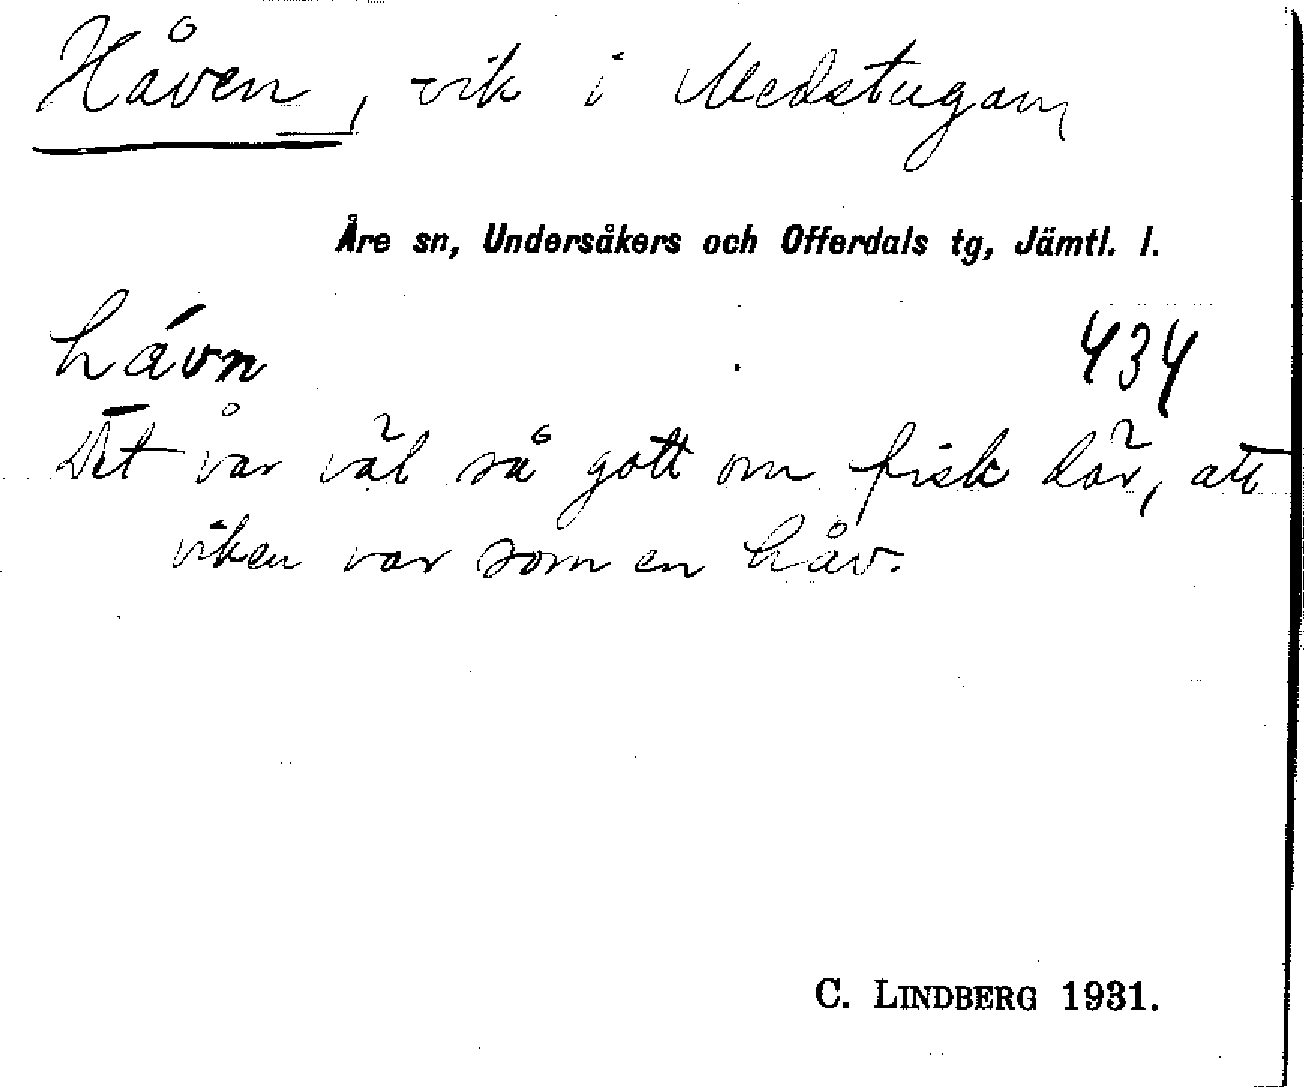 Håven, vik i Medstugan
Åre sn, Undersåkers och Offerdals tg, Jämtl. l.
håvn 434
Det var väl så gott om fisk där, att
viken var som en håv.
C. LINDBERG 1931.